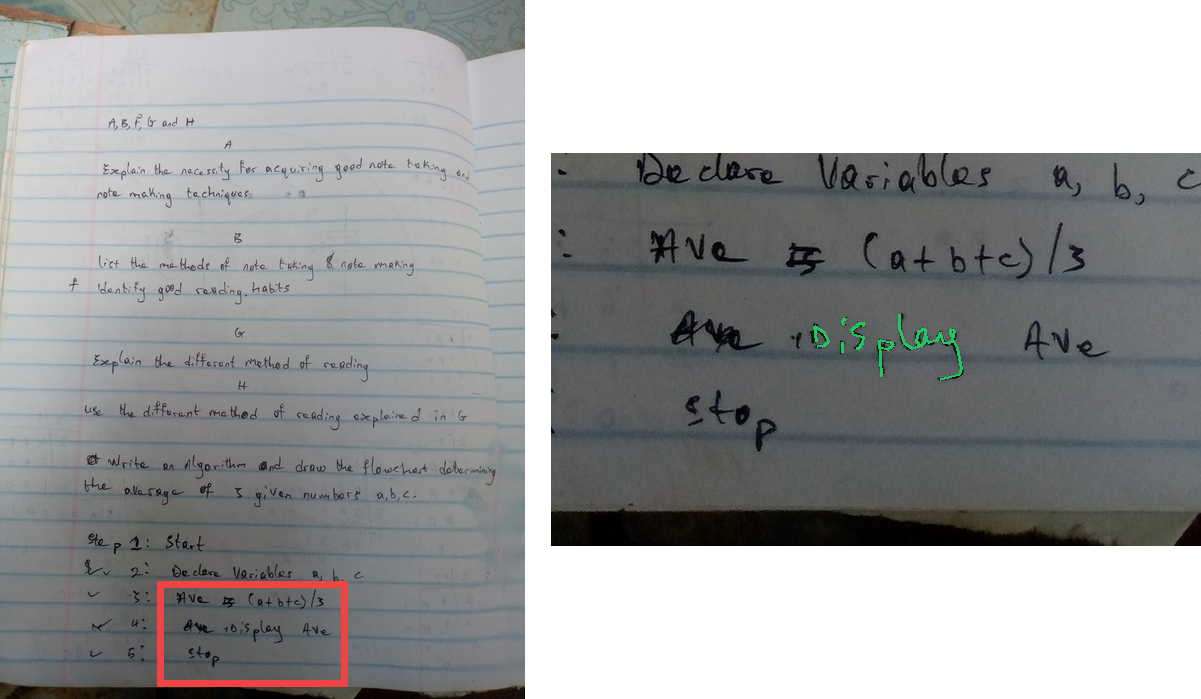 A, B, F, G and H
A
Explain the necessity for acquiring good note taking and
note making techniques.
B
List the methods of note taking & note making
f Identify good reading habits
G
Explain the different method of reading
H
use the different method of reading explained in G
Write an Algorithm and draw the flowchart determining
the average of 3 given numbers a,b,c.
Step 1: Start
2: Declare Variables a, b, c
3: Ave = (a+b+c)/3
4: Display Ave
5: Stop
Declare Variables a, b, c
: Ave = (a+b+c)/3
Display Ave
Stop